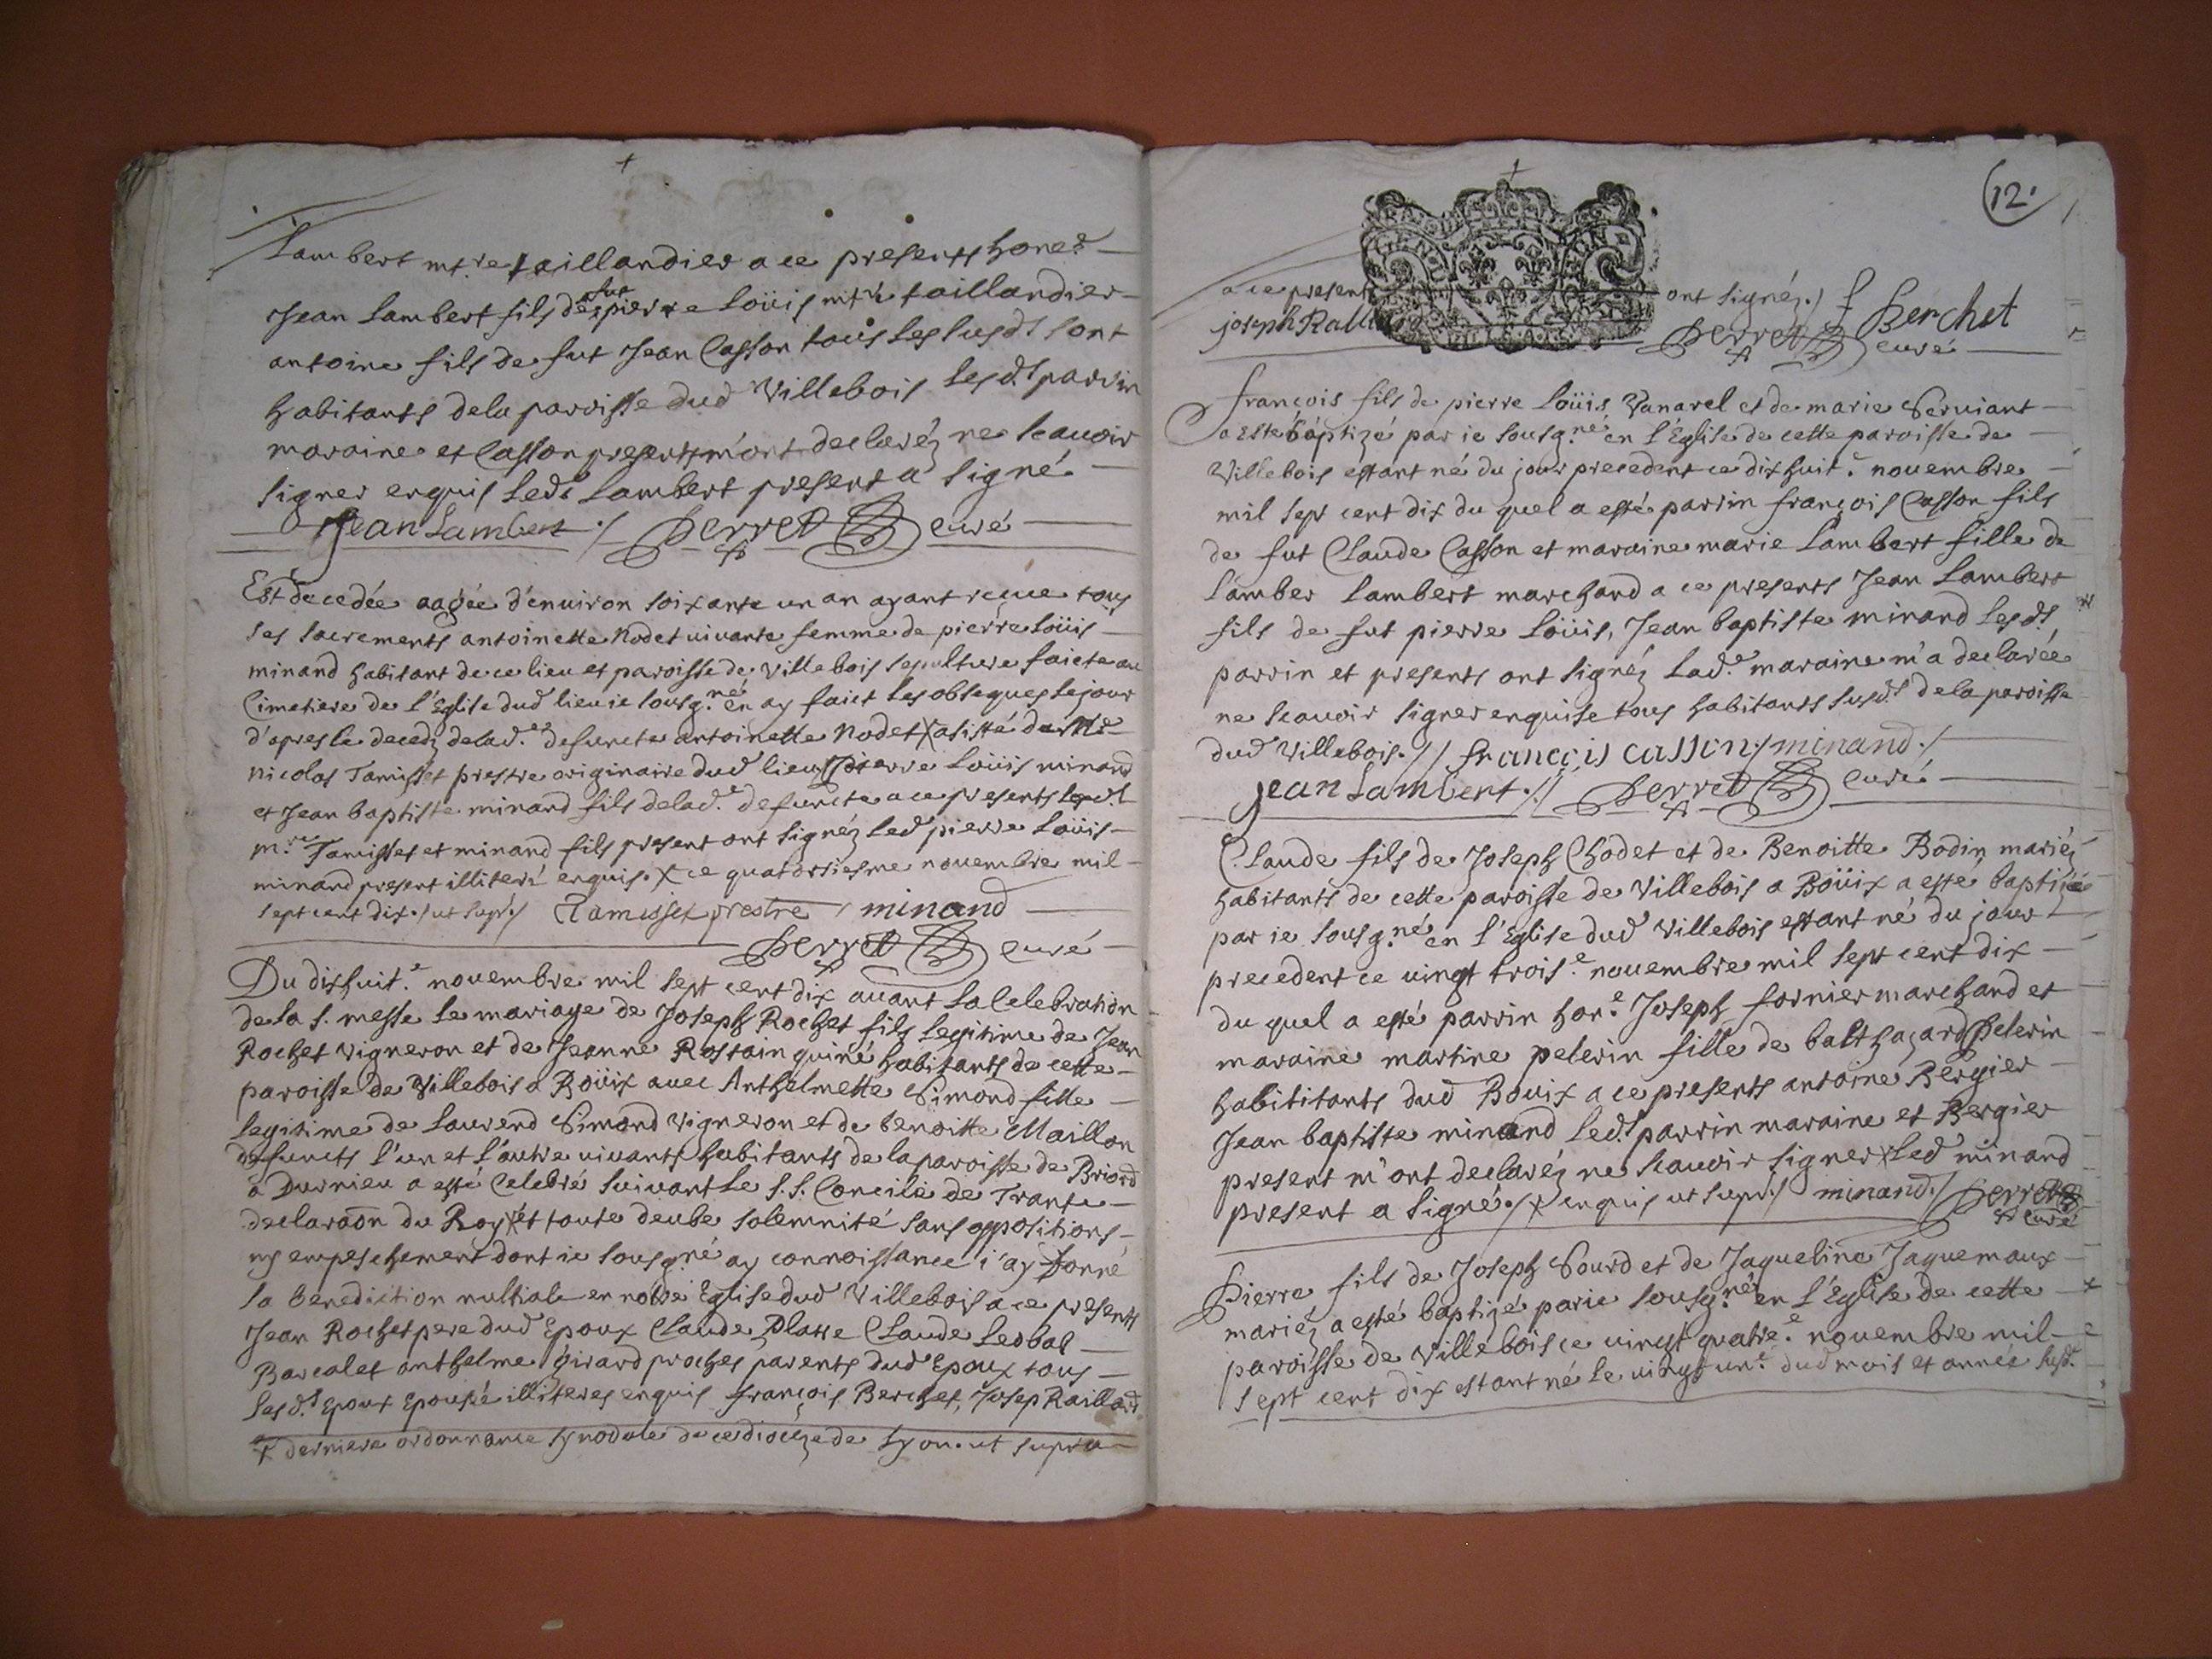 Lambert mt.re taillandier a ce presents hone.e
Jean Lambert fils de fut pierre Loüis mtre taillandier
antoine fils de fut Jean Casson tous les susd.ts sont
habitants dela paroisse dud Villebois lesd.ts parrin
maraine et Casson presents m'ont declaréz ne scauoir
signer enquis led.t Lambert present a signé
Jean Lambert ./ Perret curé
Est decedée aagée d'enuiron soixante un an ayant reçue tous
ses sacrements antoinette Nodet uiuante femme de pierre Loüis
minand habitant de ce lieu et paroisse de Villebois sepulture faicte au
Cimetiere de l'Eglise dud lieu ie sousg.né en ay faict les obseques le jour
d'apres le decedz delad.e defuncte antoinette Nodet x asisté de M.e
Nicolas Tamisset prestre originaire dud lieu Pierre Loüis minand
et Jean baptiste minand fils delad.e defuncte a ce presents lesd.t
m.re Tamisset et minand fils present ont signéz led pierre Loüis
minand present illiteré enquis. x ce quatorsiesme nouembre mil
sept cent dix./ ut supr./ Tamisset prestre / minand
Perret curé
Du dixhuit.e nouembre mil sept cent dix auant la Celebration
de la s. messe le mariage de Joseph Rochet fils legitime de Jean
Rochet Vigneron et de Jeanne Rostain quiné habitants de cette
paroisse de Villebois a Boüix auec Anthelmette Simond fille
legitime de Laurend Simond Vigneron et de benoitte Maillon
defuncts l'un et l'autre uiuants habitants de la paroisse de Briord
a Durnieu a esté Celebré suiuant le s.s. Concile de Trante
declaraon du Roy x et toute deube solemnité sans oppositions
ny empeschement dont ie sousg.né ay connoissance i'ay donné
la benediction nultiale en nôtre Eglise dud Villebois a ce presents
Jean Rochet pere dud Epoux Claude Platte Claude Ledbal
Barcalet anthelme Girard proches parents dud Epoux tous
lesd.ts Epoux Epousée illiteres enquis françois Berchet, Josep Raillard
x derniere ordonnance synodale de ce diocèze de Lyon. ut supra
12.
a ce presents ont signéz./ f Berchet
joseph Raillard Perret curé
françois fils de pierre Loüis Vanarel et de marie Seruiant
a Esté baptizé par ie sousg.né en l'Eglise de cette paroisse de
Villebois estant né du jour precedent ce dixhuit.e nouembre
mil sept cent dix du quel a esté parrin françois Casson fils
de fut Claude Casson et maraine marie Lambert fille de
Lamber Lambert marchand a ce presents Jean Lambert
fils de fut pierre Loüis, Jean baptiste minand lesd.ts
parrin et presents ont signéz lad.e maraine m'a declarée
ne scauoir signer enquise tous habitants susd.ts dela paroisse
dud Villebois.// françois casson ./ minand ./
jean Lambert .// Perret curé
Claude fils de Joseph Chodet et de Benoitte Bodin mariéz
habitants de cette paroisse de Villebois a Boüix a esté baptizée
par ie sousg.né en l'Eglise dud Villebois estant né du jour
precedent ce uingt trois.e nouembre mil sept cent dix
du quel a esté parrin hon.e Joseph fornier marchand et
maraine martine pelerin fille de balthazard Pelerin
habititants dud Bouix a ce presents antoine Bergier
Jean baptiste minand led.t parrin maraine et Bergier
present m'ont declaréz ne scauoir signer x led minand
present a signé./ x enquis ut supr./ minand ./ Perret
curé
Pierre fils de Joseph Sourd et de Jaqueline Jaquemaux
mariéz a esté baptizé par ie sousg.né en l'Eglise de cette
paroisse de Villebois ce uingt quatre.e nouembre mil
sept cent dix estant né le uingt un.e dud mois et année susd.e